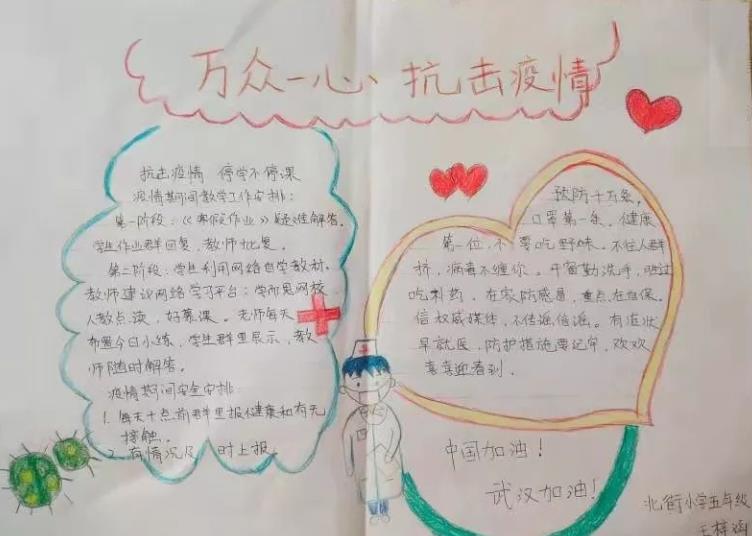 万众一心、抗击疫情
抗击疫情 停学不停课
疫情期间教学工作安排：
第一阶段：《寒假作业》疑难解答。
学生作业群回复，教师批复。
第二阶段：学生利用网络自学教材。
教师建议网络学习平台：学而思网校、
人教点读，好慕课。老师每天
布置今日小练，学生群里展示，教
师随时解答。
疫情期间安全安排：
1、每天十点前群里报健康和有无
接触。
2、有情况及时上报。
预防千万条，
口罩第一条，健康
第一位，不要吃野味，不往人群
挤，病毒不缠你。开窗勤洗手，
吃剩药，在家防感冒，重点在自保。
信权威媒体，不传谣信谣。有症状
早就医，防护措施要记牢，欢欢
喜喜迎春到。
中国加油！
武汉加油！
北街小学五年级
王梓涵